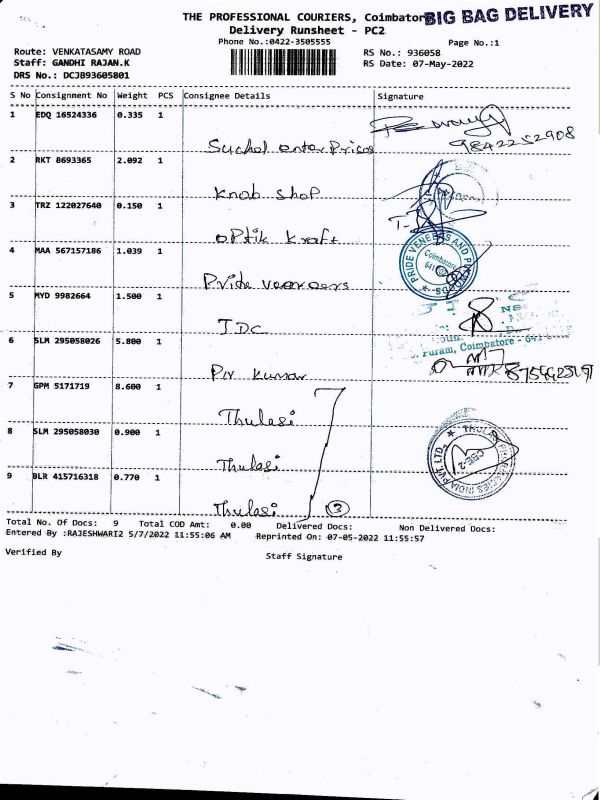 THE PROFESSIONAL COURIERS, Coimbatore BIG BAG DELIVERY
Delivery Runsheet - PC2
Phone No.:0422-3505555
Page No.:1
Route: VENKATASAMY ROAD
RS No.: 936058
Staff: GANDHI RAJAN.K
RS Date: 07-May-2022
DRS No.: DCJB93605801
S No Consignment No Weight PCS Consignee Details Signature
1 EDQ 16524336 0.335 1
9842252908
Suchal enterprises
2 RKT 8693365 2.092 1
Knob Shop
3 TRZ 122027640 0.150 1
Optik Kraft
PRIDE VENEERS AND
Coimbatore
4 MAA 567157186 1.039 1
Pride veeneers
5 MYD 9982664 1.500 1
JDC
Puram, Coimbatore - 641
6 SLM 295058026 5.800 1
PN Kumar
7 GPM 5171719 8.600 1
Thulasi
8 SLM 295058030 0.900 1
THULASI PHARMACIES INDIA PVT LTD
CBE-2
Thulasi
9 BLR 415716318 0.770 1
Thulasi 3
Total No. Of Docs: 9 Total COD Amt: 0.00 Delivered Docs: Non Delivered Docs:
Entered By :RAJESHWARI2 5/7/2022 11:55:06 AM Reprinted On: 07-05-2022 11:55:57
Verified By
Staff Signature